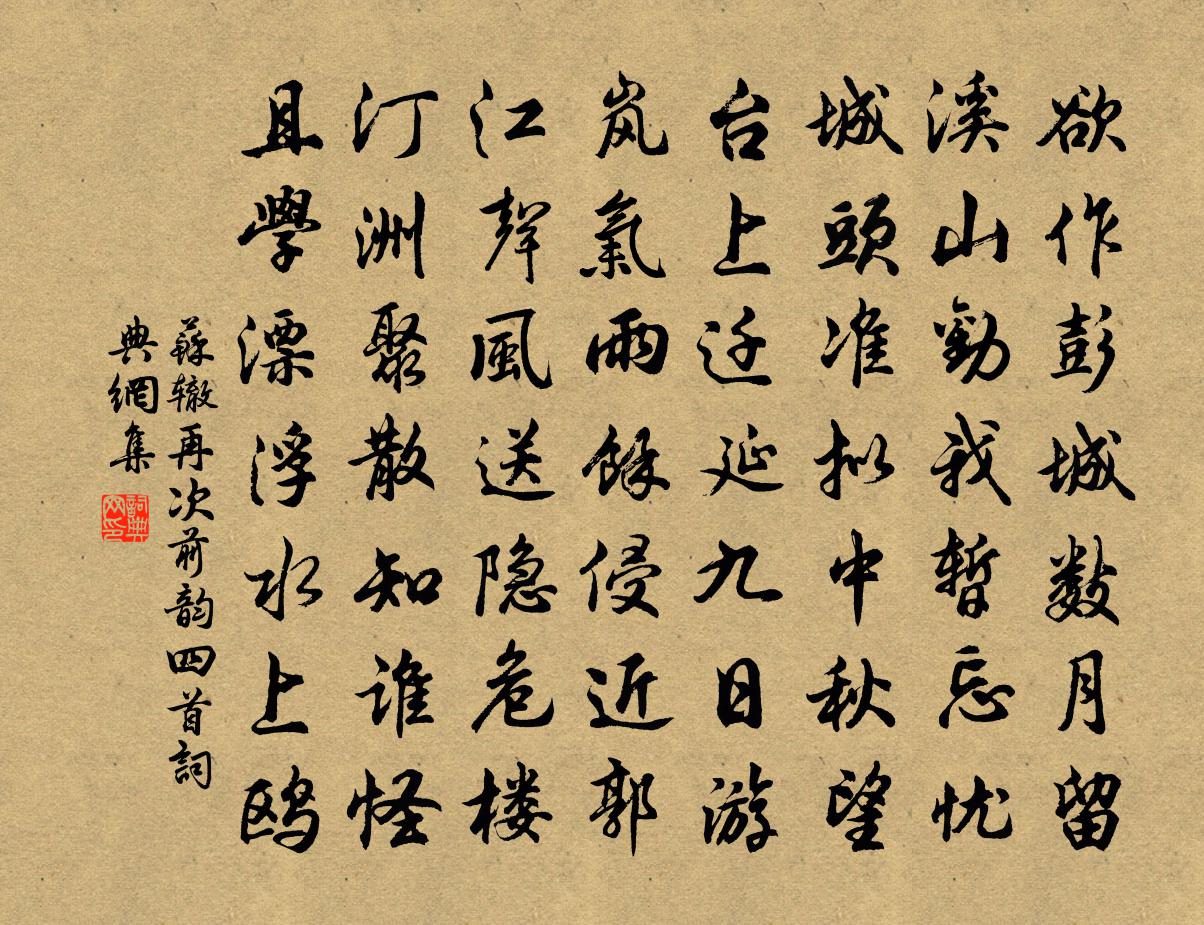 欲作彭城數月留
溪山勸我暫忘忧
城頭准拟中秋望
台上迁延九日游
岚氣雨餘侵近郭
江聲風送隐危楼
汀洲聚散知谁怪
且學漂浮水上鸥
蘇辙再次前韵四首詞
典網集
詞典网印